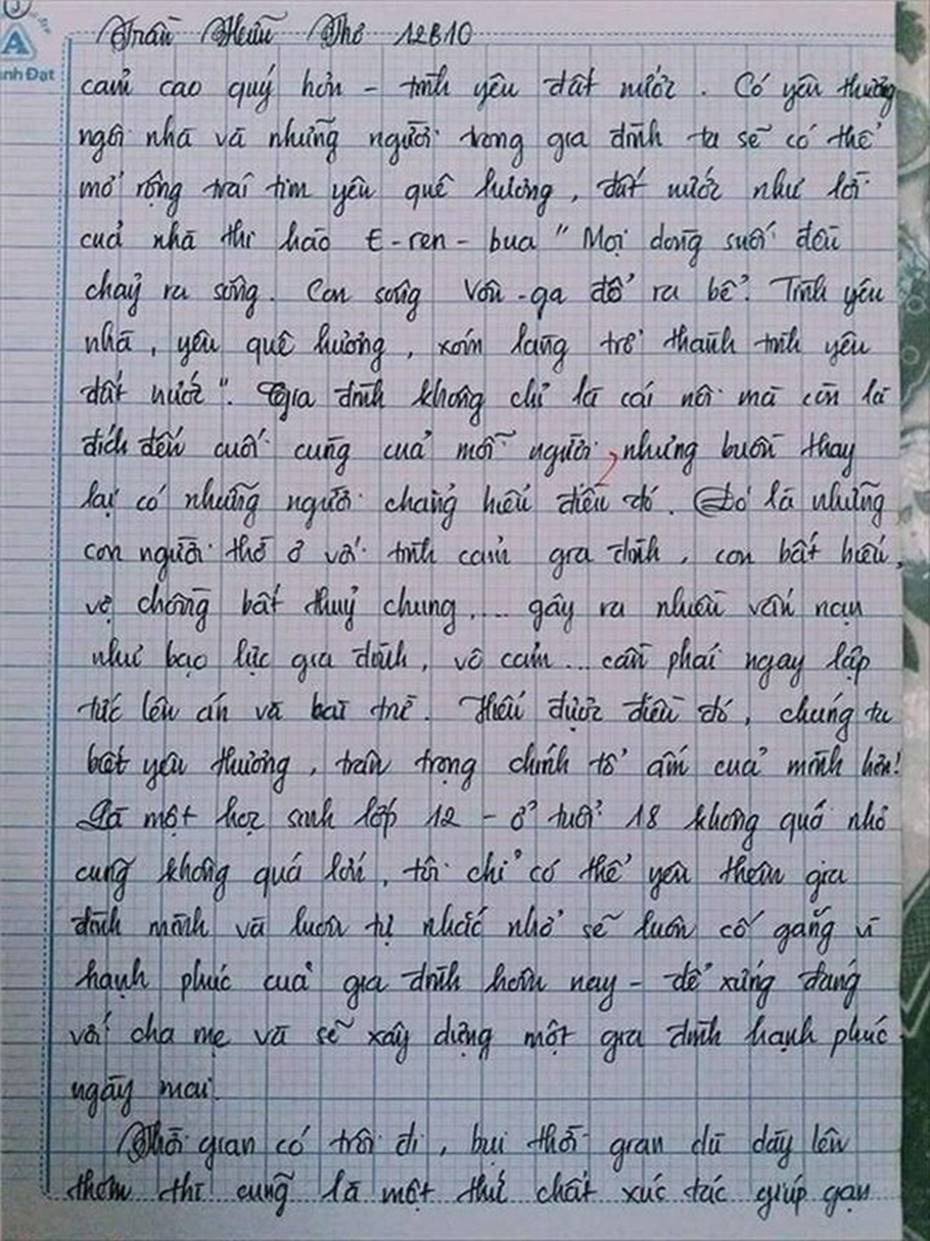 A
nh Đạt
Trần Hữu Thơ 12B10
cảm cao quý hơn - tình yêu đất nước. Có yêu thương
ngôi nhà và những người trong gia đình ta sẽ có thể
mở rộng trái tim yêu quê hương, đất nước như lời
của nhà thi hào E-ren-bua "Mọi dòng suối đều
chảy ra sông. Con sông Vôn-ga đổ ra bể. Tình yêu
nhà, yêu quê hương, xóm làng trở thành tình yêu
đất nước". Gia đình không chỉ là cái nôi mà còn là
đích đến cuối cùng của mỗi người, nhưng buồn thay
lại có những người chẳng hiểu điều đó. Đó là những
con người thờ ơ với tình cảm gia đình, con bất hiếu,
vợ chồng bất thuỷ chung,... gây ra nhiều vấn nạn
như bạo lực gia đình, vô cảm... cần phải ngay lập
tức lên án và bài trẻ. Hiểu được điều đó, chúng ta
biết yêu thương, trân trọng chính tổ ấm của mình hơn!
Là một học sinh lớp 12 - ở tuổi 18 không quá nhỏ
cũng không quá lớn, tôi chỉ có thể yêu thêm gia
đình mình và luôn tự nhắc nhở sẽ luôn cố gắng vì
hạnh phúc của gia đình hôm nay - để xứng đáng
với cha mẹ và sẽ xây dựng một gia đình hạnh phúc
ngày mai.
Thời gian có trôi đi, bụi thời gian dù dày lên
thêm thì cũng là một thứ chất xúc tác giúp gạn